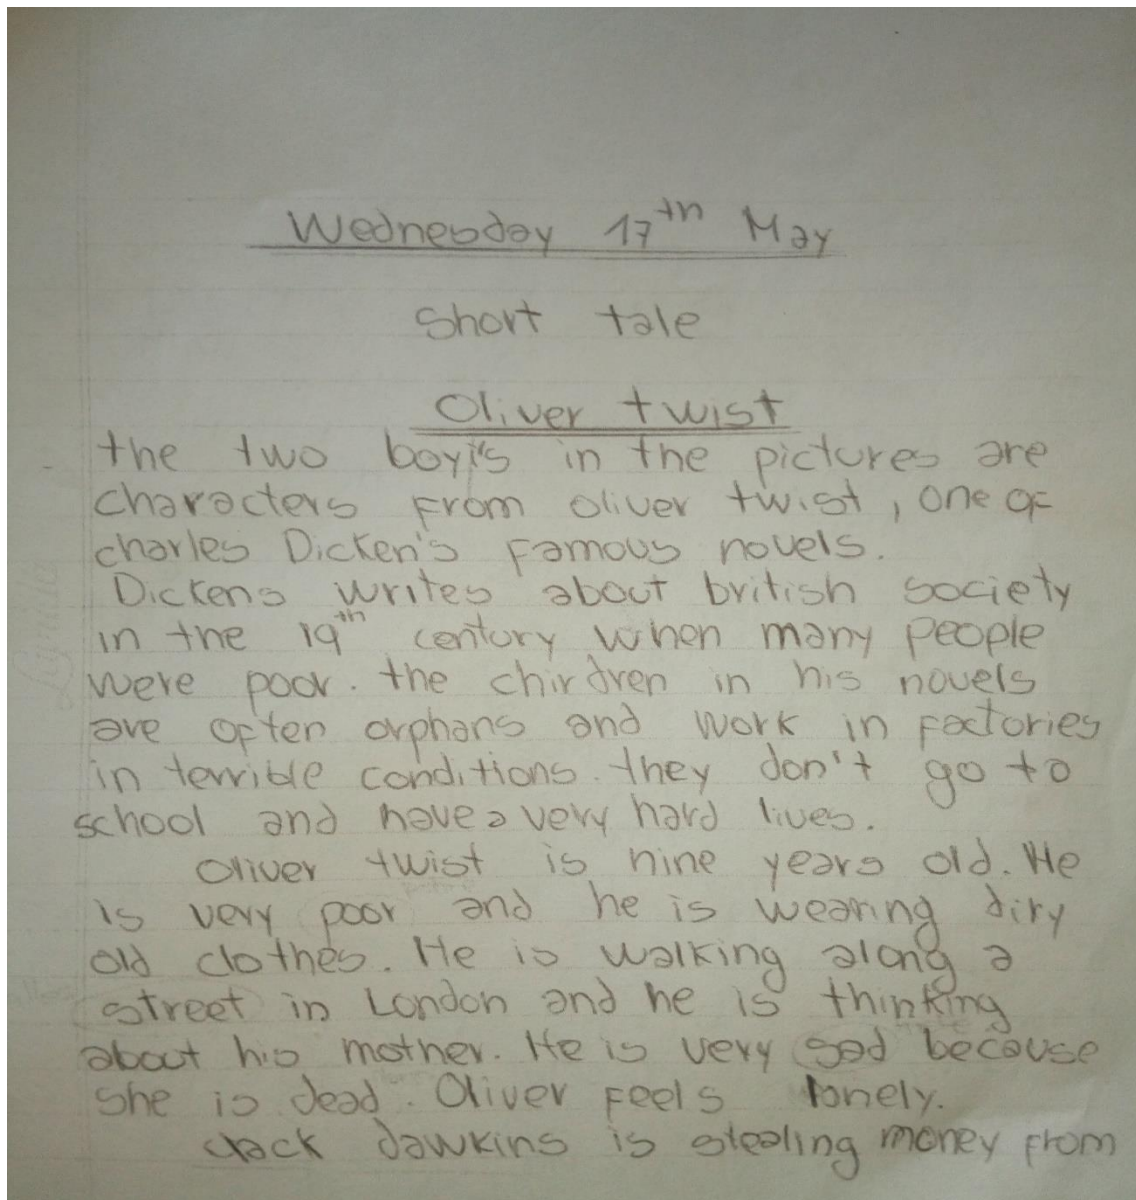 Wednesday 17th May
Short tale
Oliver twist
the two boy's in the pictures are
characters from oliver twist, one of
charles Dicken's Famous novels.
Dickens writes about british society
in the 19th century when many people
were poor. the chirdren in his novels
are often orphans and work in factories
in terrible conditions. they don't go to
school and have a very hard lives.
Oliver twist is nine years old. He
is very poor and he is wearing diry
old clothes. He is walking along a
street in London and he is thinking
about his mother. He is very sad because
she is dead. Oliver feels lonely.
Jack dawkins is stealing money from